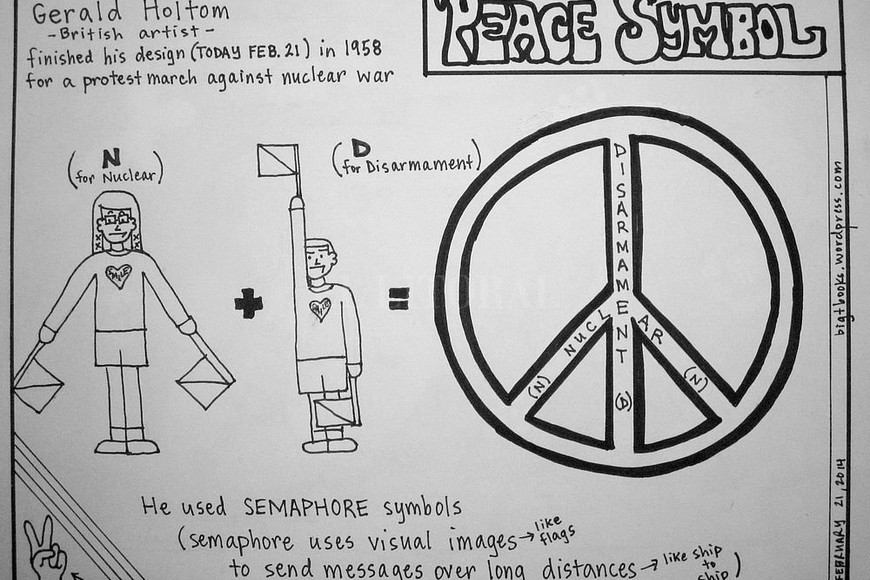 Gerald Holtom
-British artist-
finished his design (TODAY FEB. 21) in 1958
for a protest march against nuclear war
PEACE SYMBOL
N
(for Nuclear)
D
(for Disarmament)
SMILE
+
SMILE
=
DISARMAMENT
NUCLEAR
(N)
(D)
(N)
He used SEMAPHORE symbols
(semaphore uses visual images→ like flags
to send messages over long distances→ like ship to ship)
bigtbooks.wordpress.com
FEBRUARY 21, 2014